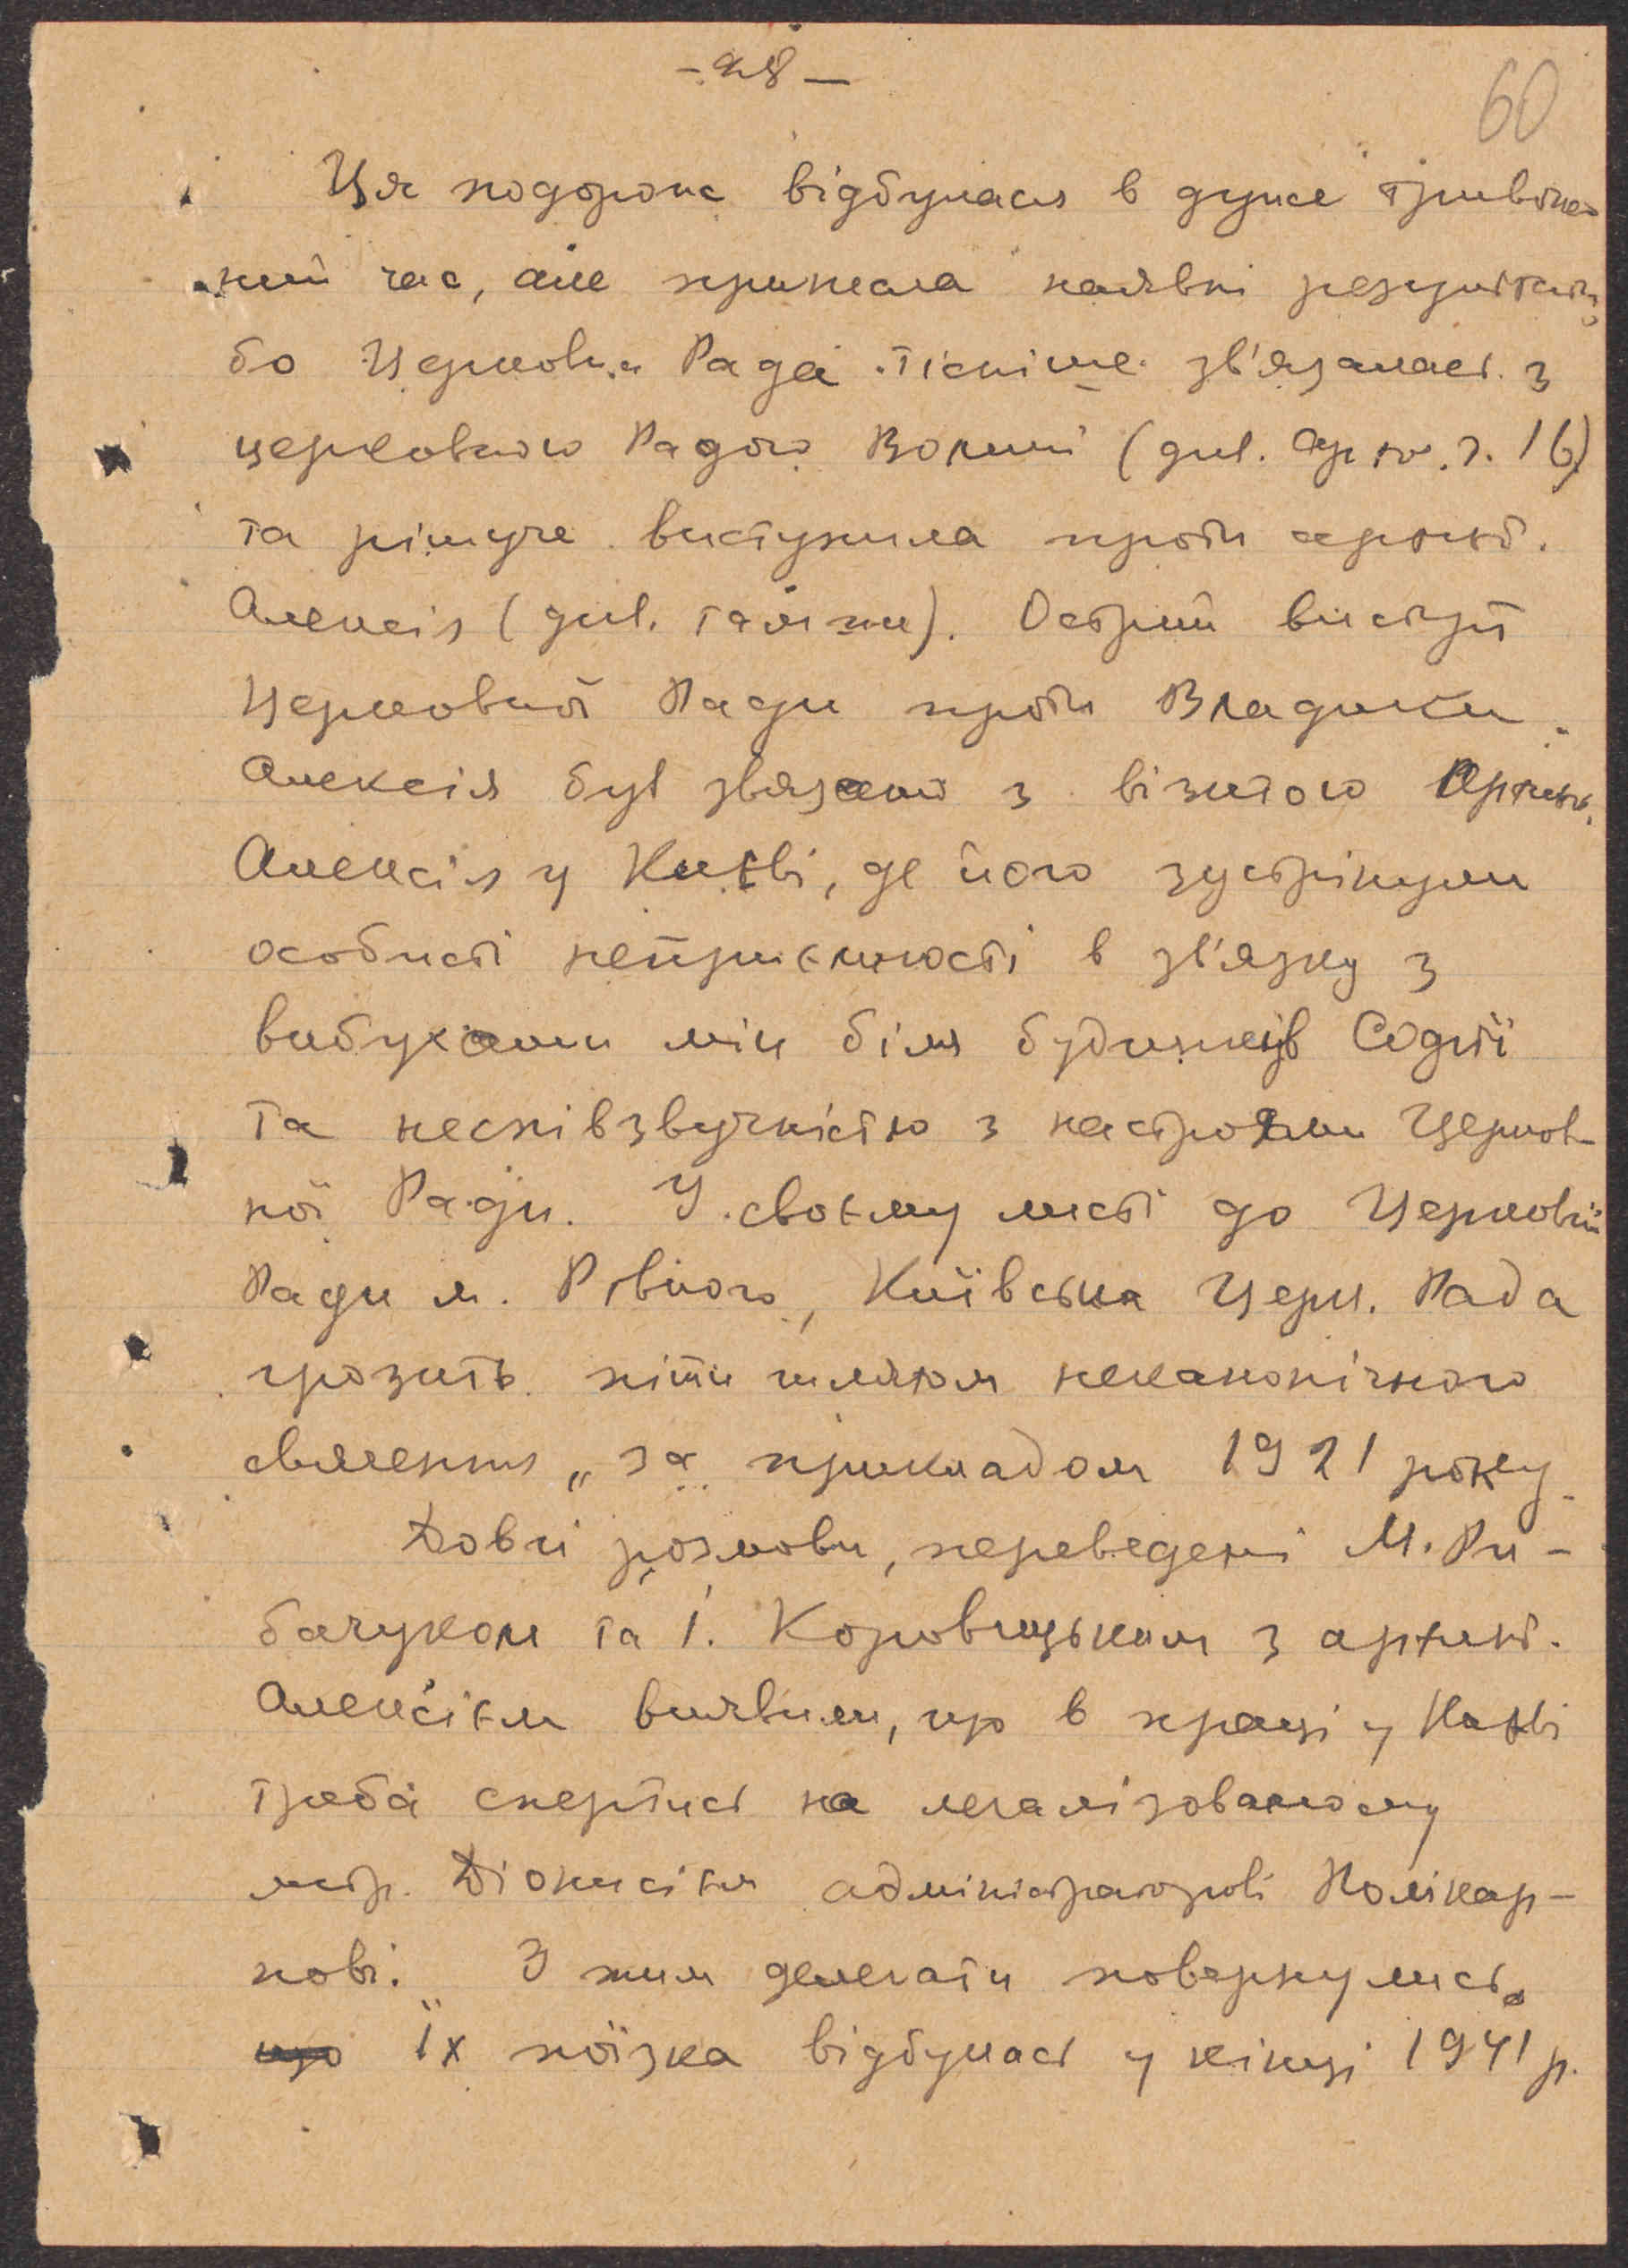 - 28 -
60
Ця подорож відбулася в дуже тривож-
ний час, але принесла наявні результати,
бо Церковна Рада тісніше зв'язалась з
церковною Радою Волині (див. арк. 16)
та рішуче виступила проти архиєп.
Алексія (див. там же). Острий виступ
Церковної Ради проти Владики
Алексія був звязаний з візитою Архиєп.
Алексія у Києві, де його зустрінули
особисті неприємності в зв'язку з
вибухами мін біля будинків Софії
та неспівзвучністю з настроями Церков-
ної Ради. У своєму листі до Церковної
Ради м. Рівного, Київська Церк. Рада
грозить піти шляхом неканонічного
свячення „за прикладом 1921 року
Довгі розмови, переведені М. Ри-
бачуком та І. Коровицьким з архиєп.
Алексієм виявили, що в праці у Києві
треба спертись на легалізованому
митр. Діонисієм адміністраторові Полікар-
пові. З тим делегати повернулись.
що Їх поїзка відбулась у кінці 1941 р.